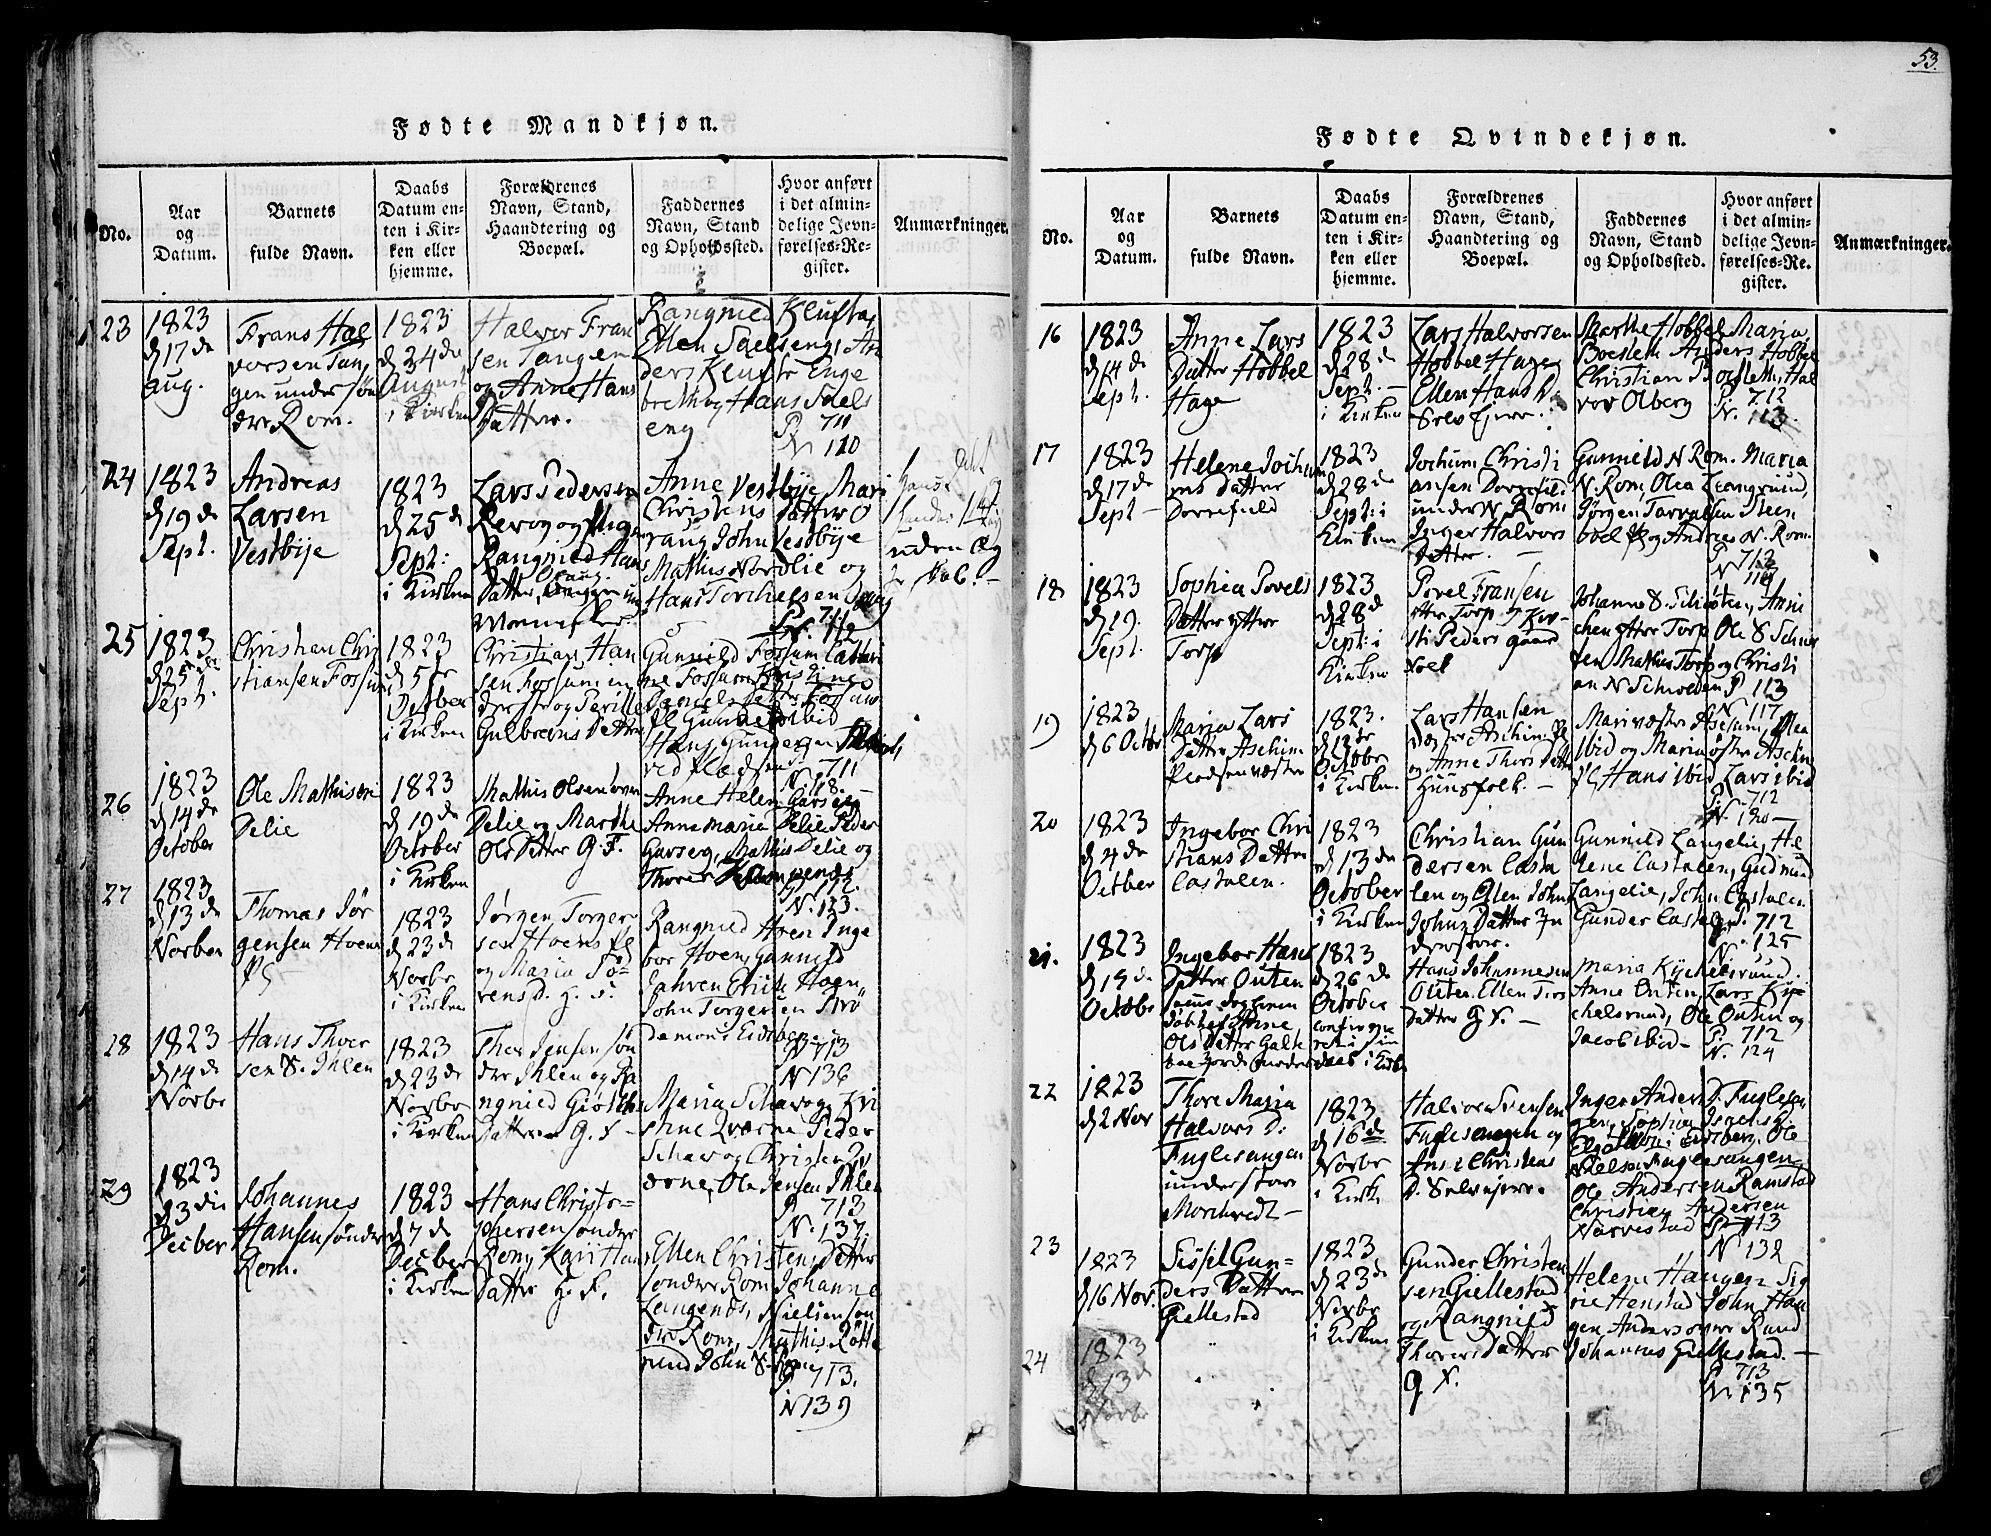 53.
Fødte Mandkjøn.
No.
Aar
og
Datum.
Barnets
fulde Navn.
Daabs
Datum en-
ten i Kir-
ken eller
hjemme.
Forældrenes
Navn, Stand,
Haandtering og
Boepæl.
Faddernes
Navn, Stand
og Opholdssted.
Hvor anført
i det almin-
delige Jevn-
førelses-Re-
gister.
Anmærkninger.
23
1823
d 17 de
aug.
Frans Hal
vorsen Tan
gen under søn
dre Rom.
1823
d 24 de
August
i Kirken
Halvor Fran
sen Tangen
og Anne Hans
Datter.
Rangnied Klufta,
Ellen Saelseng, An
ders Klufta Enge
breth og Hans Saels
eng
P. 711
N 110
24
1823
d 19 de
Sept.
Andreas
Larsen
Vestbye
1823
d 25 de
Sept:
i Kirken
Lars Pedersen
Revog og Pige
Rangnied Hans
Datter,
Anne Vestbye Mari
Christens Datter O
raug John Vestbye
Mathis Nordlie og
Hans Torchelsen
P. 711
N. 112
uden Æg
te skab. –
25
1823
d 25
Sept.
Christian Chri
stiansen Fossum
1823
d 5 te
October
i Kirken
Christian Han
sen Fossum in
derste og Pernille
Gulbrans Datter
Gunnild Fossum Cathri
ne Fossum Kristine
Daniels Datter Fossum
Pl Gunner ibid
Hans Gundersen
ved Pladsen
P. 711
N. 118.
26
1823
d 14 de
October
Ole Mathisen
Delie
1823
d 19 de
October
i Kirken
Mathis Olsen
Delie og Marthe
Ols Datter G. F.
Anne Helen Garseg
Anne Maria Delie Peder
Garseg, Mathis Delie og
Thorer
P. 712.
N. 123.
27
1823
d 13 de
Novber
Thomas Jør
gensen Hoens
Pl
1823
d 23 de
Novbr
i Kirken
Jørgen Torger
sen Hoens Pl
og Maria Tø
rensd. g. F.
Rangnied Hoen Inge
bor Hoen, Gunnild
Jahren Erich Hoen,
John Torgersen Strø
damon i Eidsberg
P 713
N 136
28
1823
d 14 de
Novbr
Hans Thor
sen S. Ihlen
1823
d 23 de
Novbr
i Kirken
Thor Jensen søn
dre Ihlen og Ra
ngnied
Datter G. F –
Maria Schavog, Kri
stine Qværne Peder
Schavog Christen Qv
ærne, Ole Jensen Ihlen
P 713
N. 137
29
1823
d 3 die
Decber
Johannes
Hansen sønder
Rom.
1823
d 7 de
Decber
i Kirken
Hans Christo-
phersen sønder
Rom, Kari Hans
Datter G. F.
Ellen Christens Datter
søndre Rom Johanne
Langenæs, Nielsen søn
dre Rom, Mathis Røtte
rund John S. Rom
P 713.
N 139
Fødte Qvindekjøn.
No.
Aar
og
Datum.
Barnets
fulde Navn.
Daabs
Datum en-
ten i Kir-
ken eller
hjemme.
Forældrenes
Navn, Stand,
Haandtering og
Boepæl.
Faddernes
Navn, Stand
og Opholdssted.
Hvor anført
i det almin-
delige Jevn-
førelses-Re-
gister.
Anmærkninger.
16
1823
d 14 de
Sept.
Anne Lars
Datter Hobbel
Hage
1823
d 28 de
Sept. –
i Kirken
Lars Halvorsen
Hobbel Hage
Ellen Hans D.
Selv Ejere.
Marthe Hobbel Maria
Boesleth Anders Hobbel
Christian Boesleth, Hal
vor Olberg
P. 712
N. 113.
17
1823
d 17 de
Sept –
Helene Jochum
ens Datter
Dorrefield
1823
d 28 de
Sept: i
Kirken
Jochum Christi
ansen Dorrefild
under N Rom
Inger Halvors
Datter. –
Gunnild N Rom. Maria
N. Rom, Olea Leangrund,
Jørgen Tarvalsen Steen
boel Pl og Andries N. Rom.
P 712
N 114
18
1823
d 19.
Sept.
Sophia Povels
Datter ytter
Torp
1823
d 28 d
Sept: i
Kirken
Povel Fransen
ytter Torp og Kir
sti Peders
Johanne S. Schiøten, Anne
chen ytter Torp Ole S Schiø
ten Mathis Torp og Christi
an N Schiolden P 113
N. 117
19
1823
d 6 Octbr
Maria Lars
Datter Aschim
Pladsen væster
1823.
d 12 te
Octobr
i Kirken
Lars Hansen
væster Aschim Pl
og Anne Thors Datter
Huusfolk. –
Mari væster Aschim, Olea
ibid og Maria øster Aschim
Pl Hans ibid Lars ibid
P. 712
N. 120 –
20
1823
d 4 de
Octber
Ingebor Chri
stians Datter
Castalen.
1823
d 13 de
October
i Kirken
Christian Gun
dersen Casta
len og Ellen Johns
Johns Datter In
derster.
Gunnild Langelie, He
lene Castalen, Gudmund
Langelie, John Castalen
Gunder Castalen P. 712
N. 125
21.
1823
d 15 de
Octobr
Ingebor Hans
Datter Outen
1823
d 26 de
October
i Kirke
Hans Johannesen
Outen. Ellen Tors
Datter G F. –
Maria Kychelsrund.
Anne Outen, Lars Ky-
chelsrund, Ole Outen og
Jacob ibid –
P. 712
N. 124
22
1823
d 2 Nov
Thore Maria
Halvors D.
Fuglesangen
under store
Morthvedt –
1823
d 16 de
Novbr
i Kirke
Halvor Svensen
Fuglesangen og
Anne Christens
D. Selvejere.
Inger Anders D. Fuglesan
gen, Sophia
i Eidsberg, Ole
Nielsen Fuglesangen
Ole Andersen Ramstad
Christian Andersen
Narvestad P 713
N 132
23
1823
d 16 Nov.
Sissil Gun-
ders Datter
Giellestad
1823
d 23 de
Novbr
i Kirken
Gunder Christen
sen Giellestad
og Rangnied
Thorers Datter
G F.
Helene Haugen Sig
rie Henstad John Hau
gen Anders Rund
Johannes Giellestad. –
P 713
N. 135
24
1823
d 13 de
Novbr